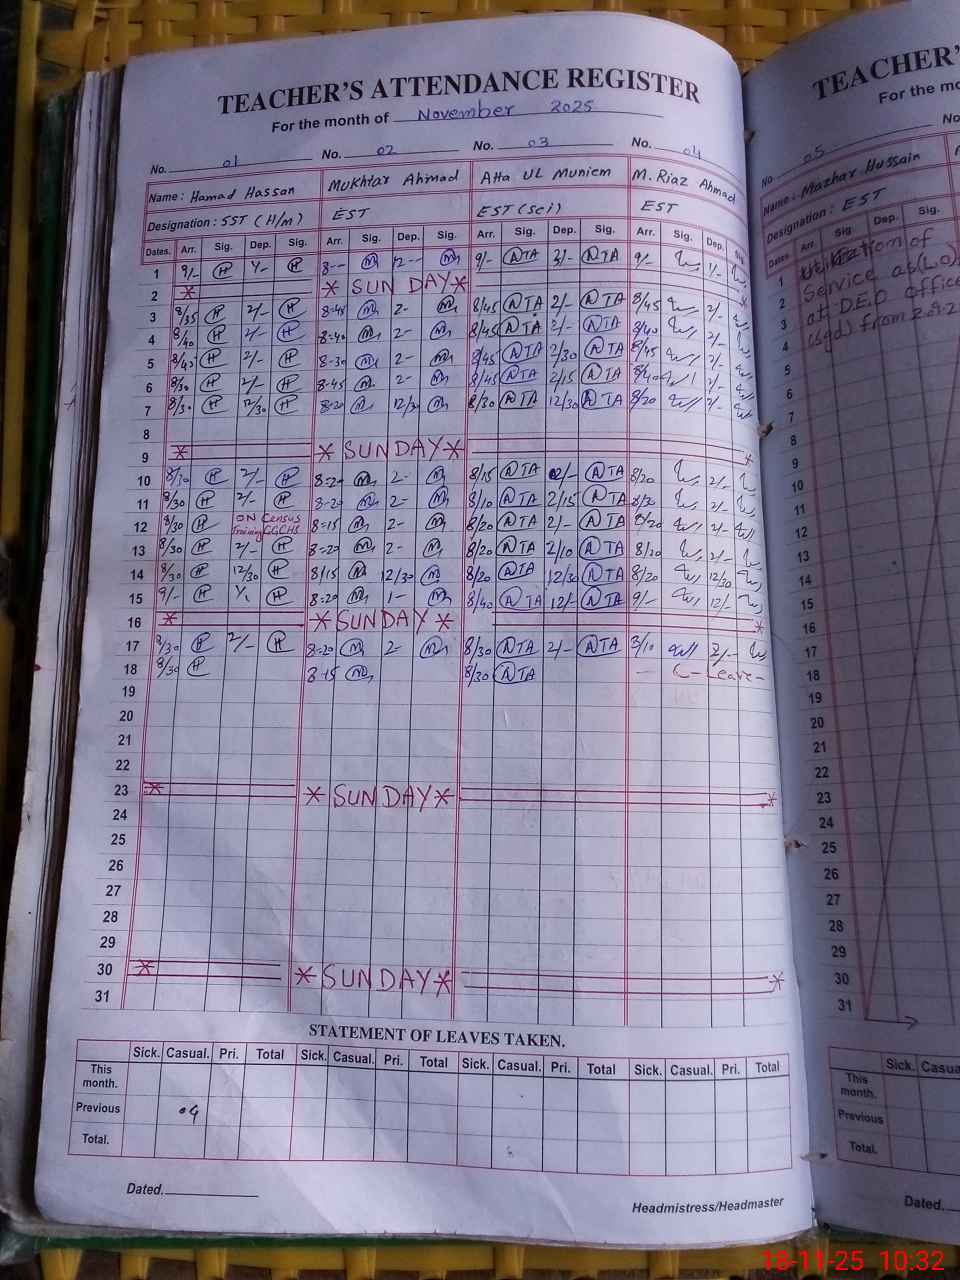 TEACHER'S ATTENDANCE REGISTER
For the month of November 2025
No. 01 No. 02 No. 03 No. 04
Name : Hamad Hassan Mukhtar Ahmad Atta UL Muniem M. Riaz Ahmad
Designation : SST (H/m) EST EST (Sci) EST
Dates. Arr. Sig. Dep. Sig. Arr. Sig. Dep. Sig. Arr. Sig. Dep. Sig. Arr. Sig. Dep.
1 9/- H H M M 9/- ATA ATA 9/-
2 * * SUNDAY *
3 8/35 H 2/- H 8-45 M 2- M 8/45 ATA 2/- ATA 8/45 2/-
4 8/40 H 2/- H 8-40 M 2- M 8/45 ATA 2/- ATA 8/40 2/-
5 8/45 H 2/- H 8-30 M 2- M 8/45 ATA 2/30 ATA 8/45 2/-
6 8/30 H 2/- H 8-45 M 2- M 8/45 ATA 2/15 ATA 8/40 2/-
7 8/30 H 12/30 H 8-20 M 12/30 M 8/30 ATA 12/30 ATA 8/20 2/-
8
9 * * SUNDAY * *
10 8/30 H 2/- H 8-20 M 2- M 8/15 ATA 2/- ATA 8/20 2/-
11 8/30 H 2/- H 8-20 M 2- M 8/10 ATA 2/15 ATA 8/20 2/-
12 8/30 H ON Census Training GGCHS 8-15 M 2- M 8/20 ATA 2/- ATA 8/20 2/-
13 8/30 H 2/- H 8-20 M 2- M 8/20 ATA 2/10 ATA 8/20 2/-
14 8/30 H 12/30 H 8/15 M 12/30 M 8/20 ATA 12/30 ATA 8/20 12/30
15 9/- H H 8-20 M 1- M 8/40 ATA 12/- ATA 9/- 12/-
16 * * SUNDAY * *
17 8/30 H 2/- H 8-20 M 2- M 8/30 ATA 2/- ATA 2/-
18 8/30 H 8-15 M 8/30 ATA C-Leave-
19
20
21
22
23 * * SUNDAY * *
24
25
26
27
28
29
30 * * SUNDAY * *
31
STATEMENT OF LEAVES TAKEN.
Sick. Casual. Pri. Total Sick. Casual. Pri. Total Sick. Casual. Pri. Total Sick. Casual. Pri. Total
This month.
Previous 04
Total.
Dated.
Headmistress/Headmaster
TEACHER'
For the mo
No. 05 No
Name : Mazhar Hussain
Designation : EST
Dates Arr. Sig. Dep. Sig.
1 Utilization of
2 Service as (L.O)
3 at D.E.O office
4 from
5
6
7
8
9
10
11
12
13
14
15
16
17
18
19
20
21
22
23
24
25
26
27
28
29
30
31
Sick. Casua
This month.
Previous
Total.
Dated.
18-11-25 10:32